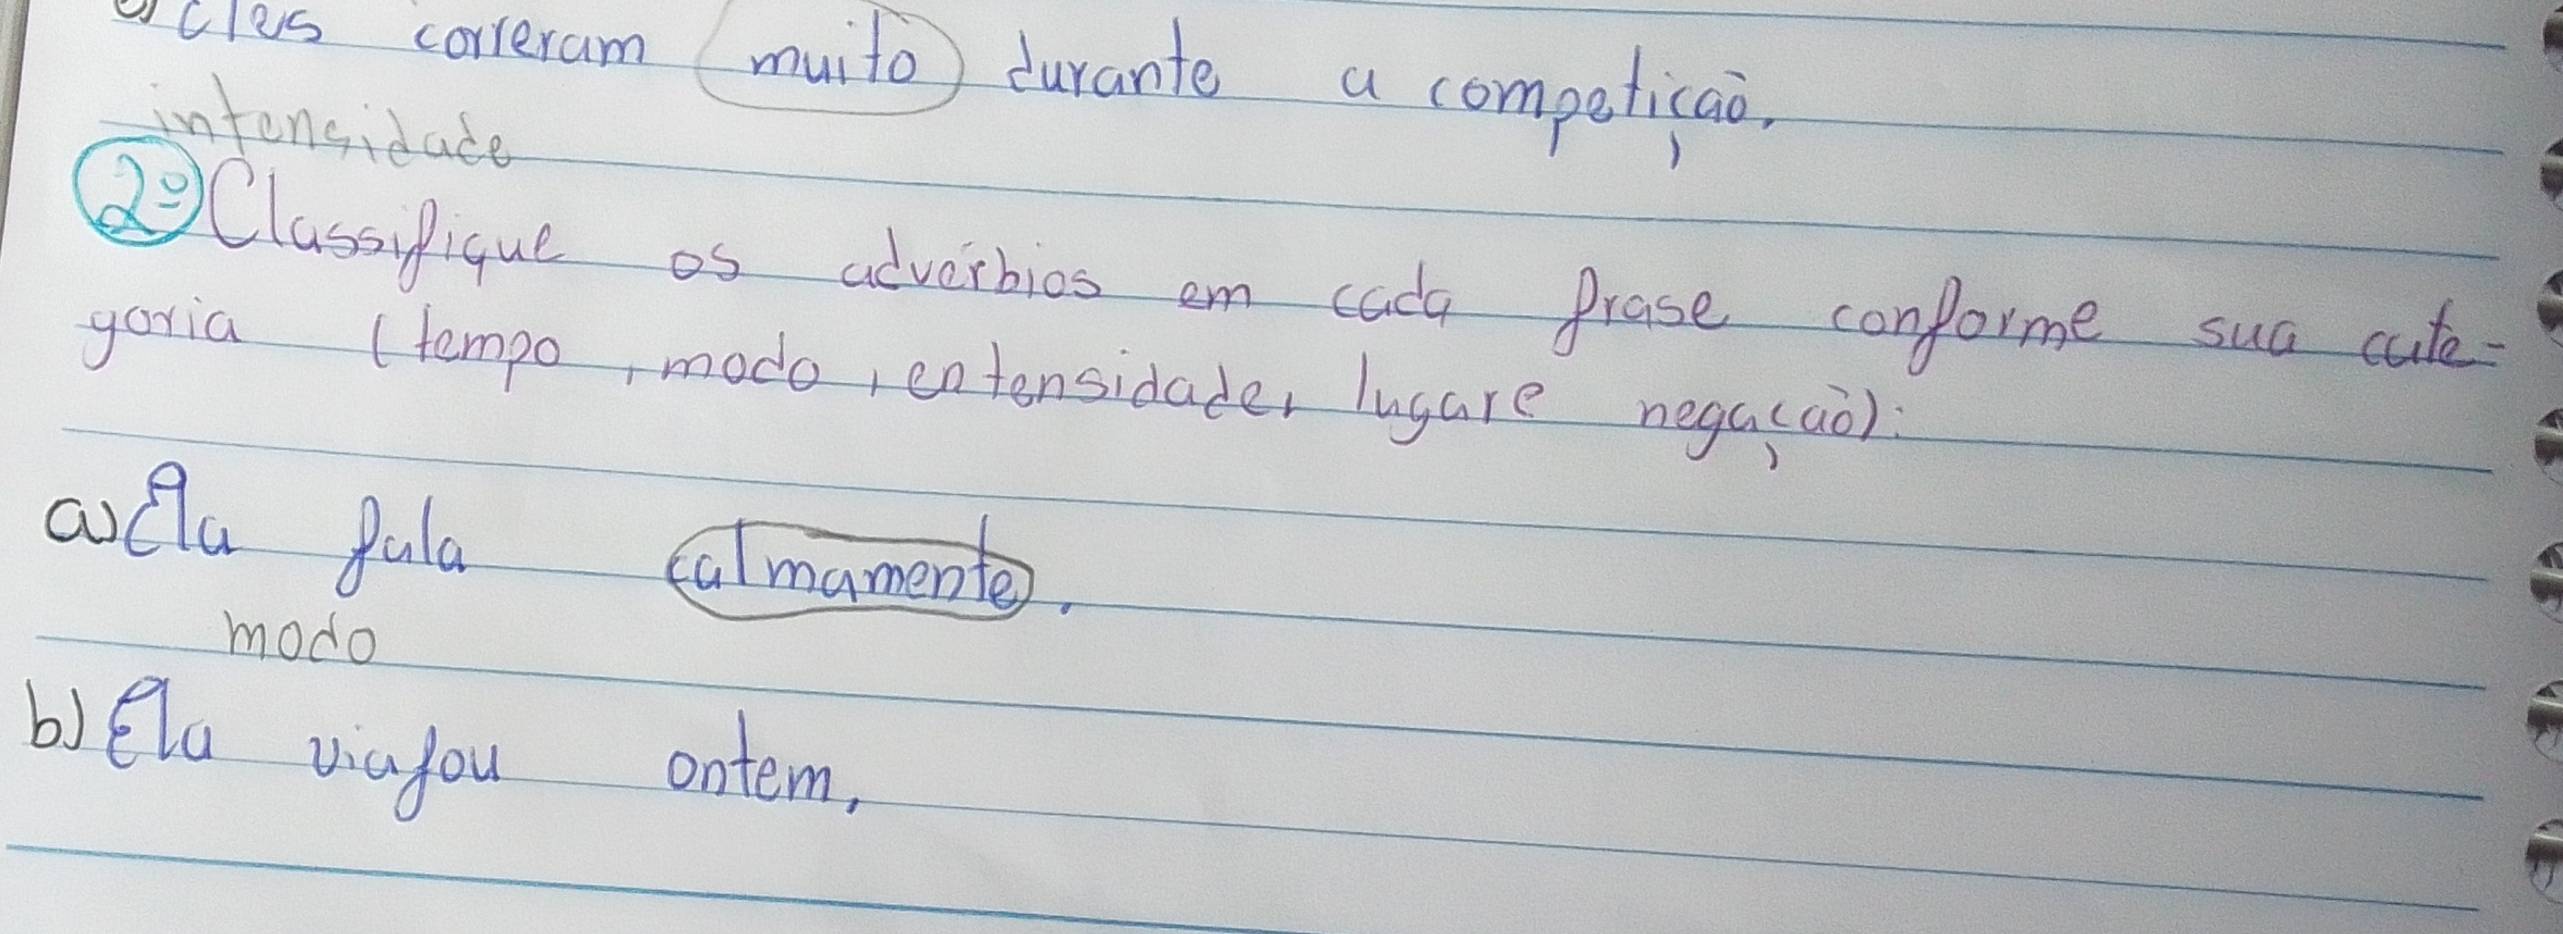 Eles correram muito durante a competição.
intensidade
2º Classifique os advérbios em cada frase conforme sua cate-
goria (tempo, modo, entensidade, lugar e negação):
a) Ela fala calmamente.
modo
b) Ela viajou ontem.